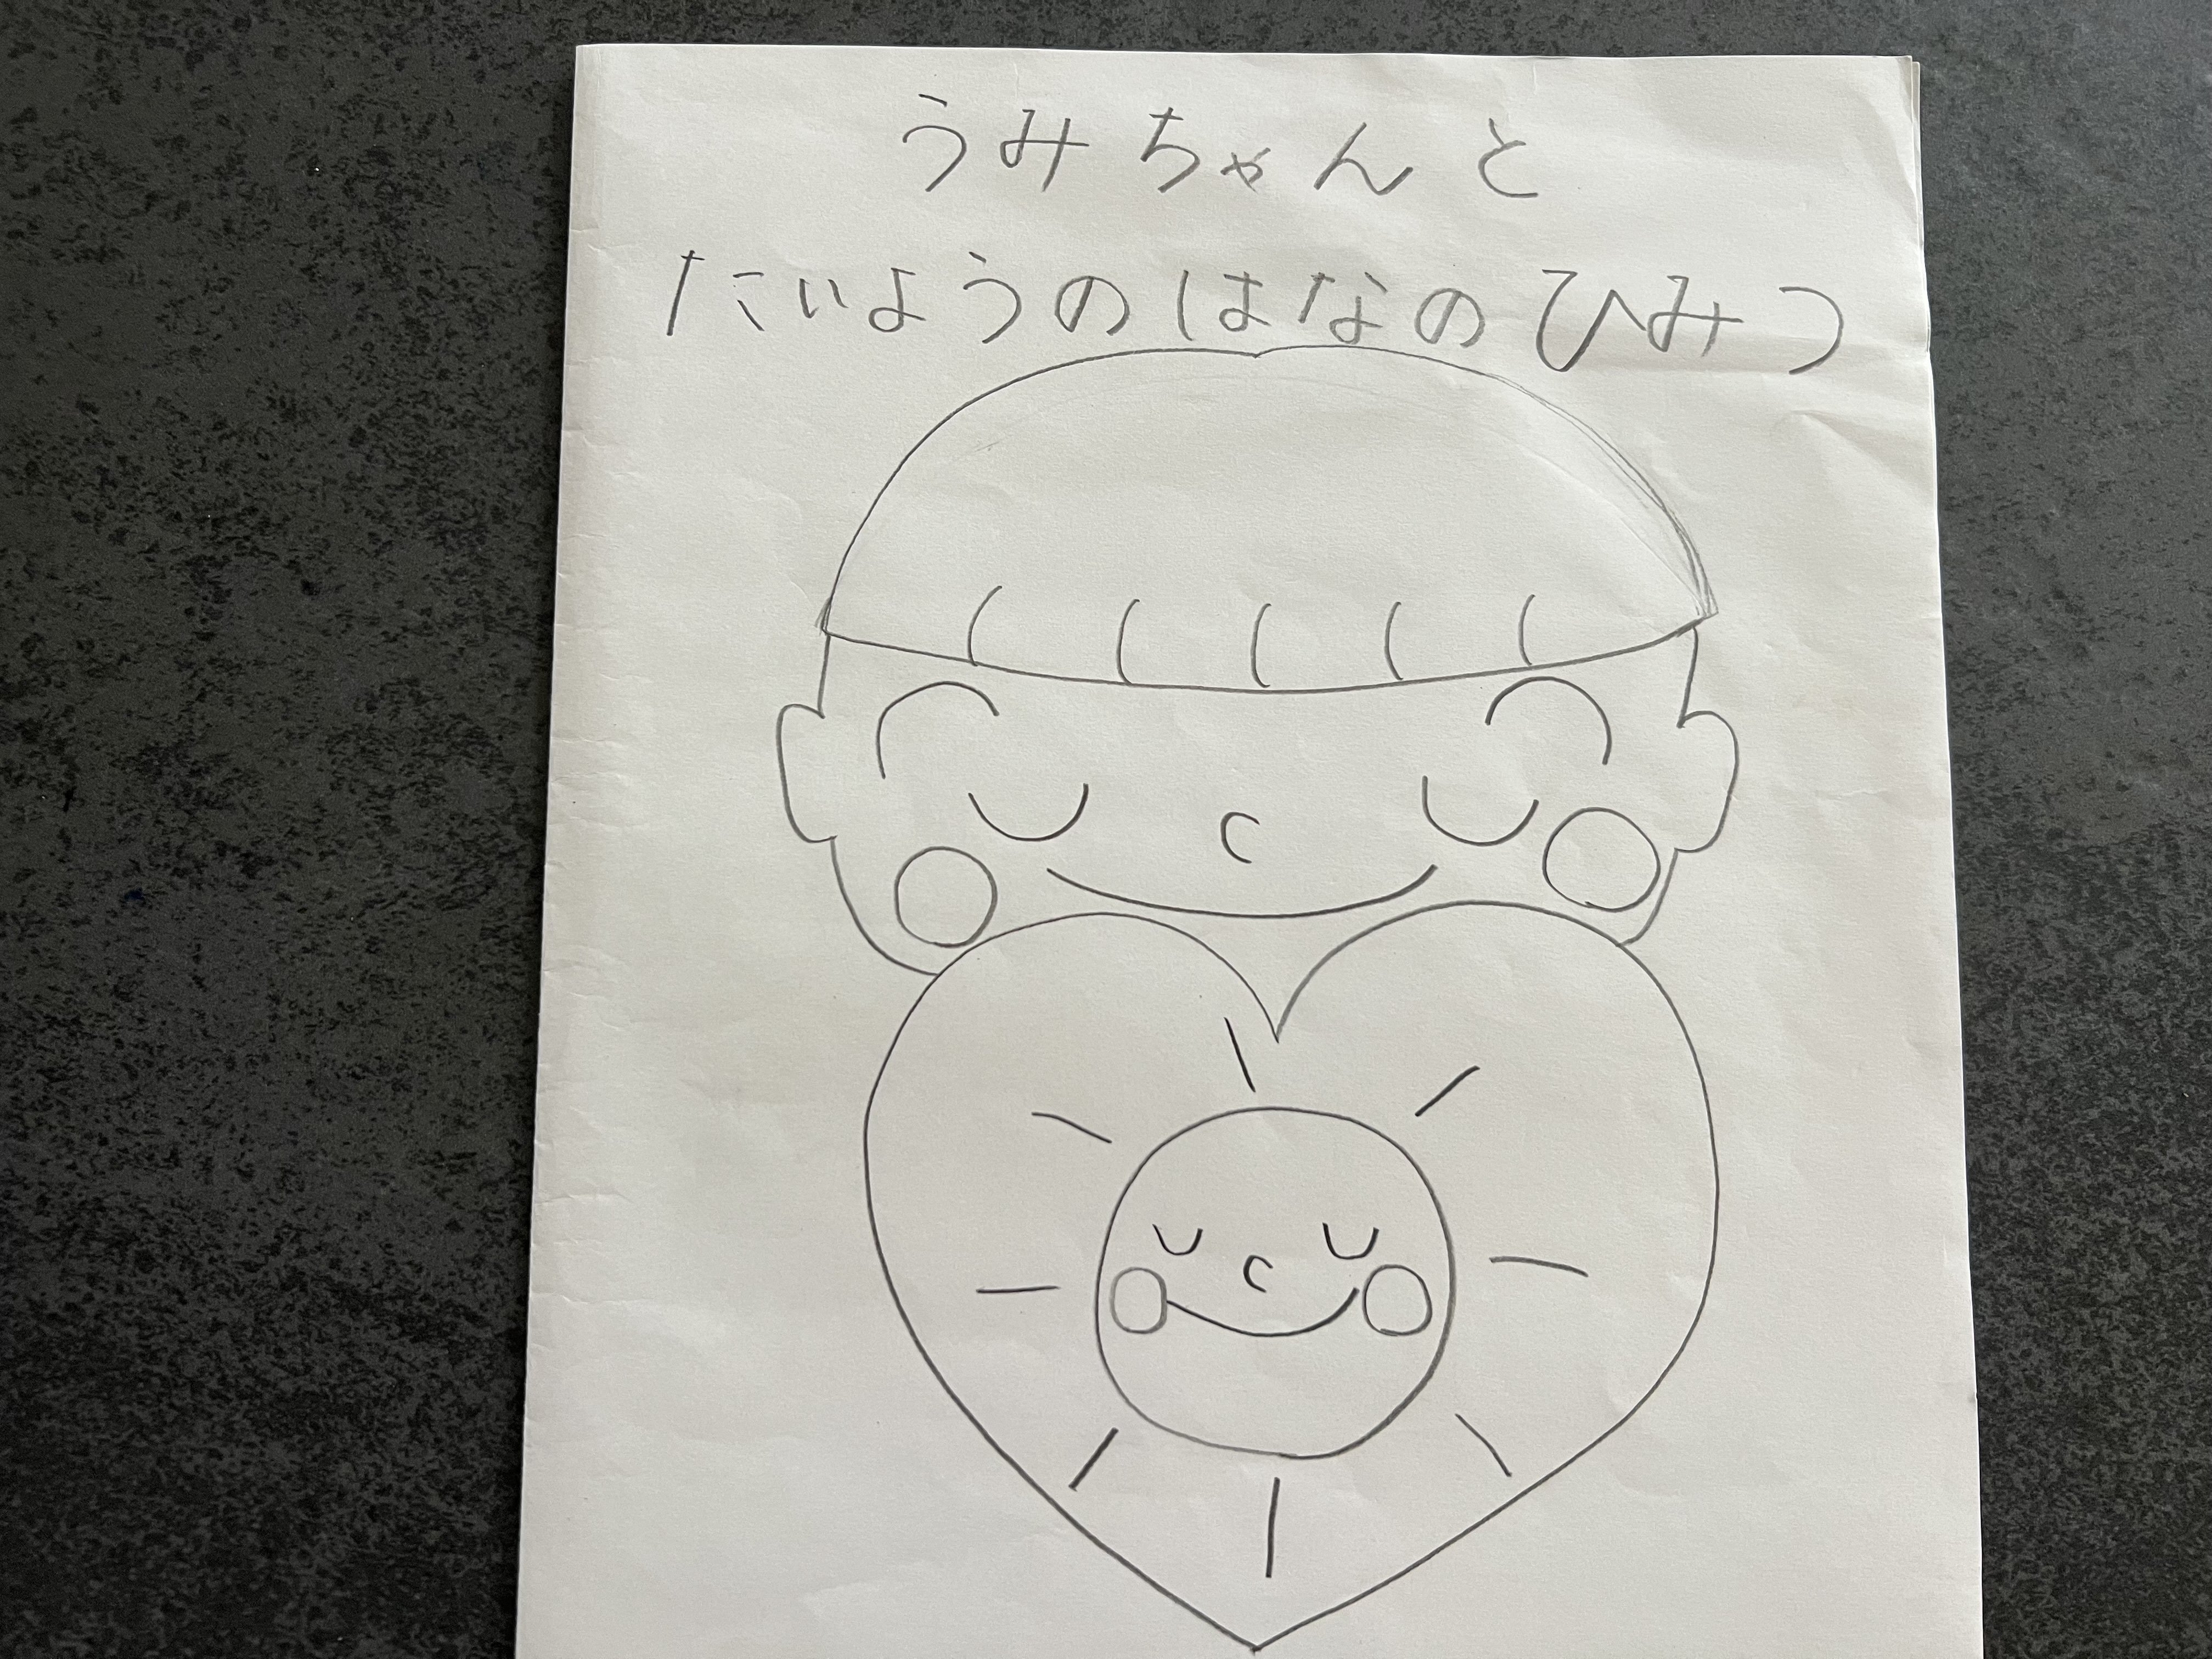 うみちゃんと
たいようのはなのひみつ